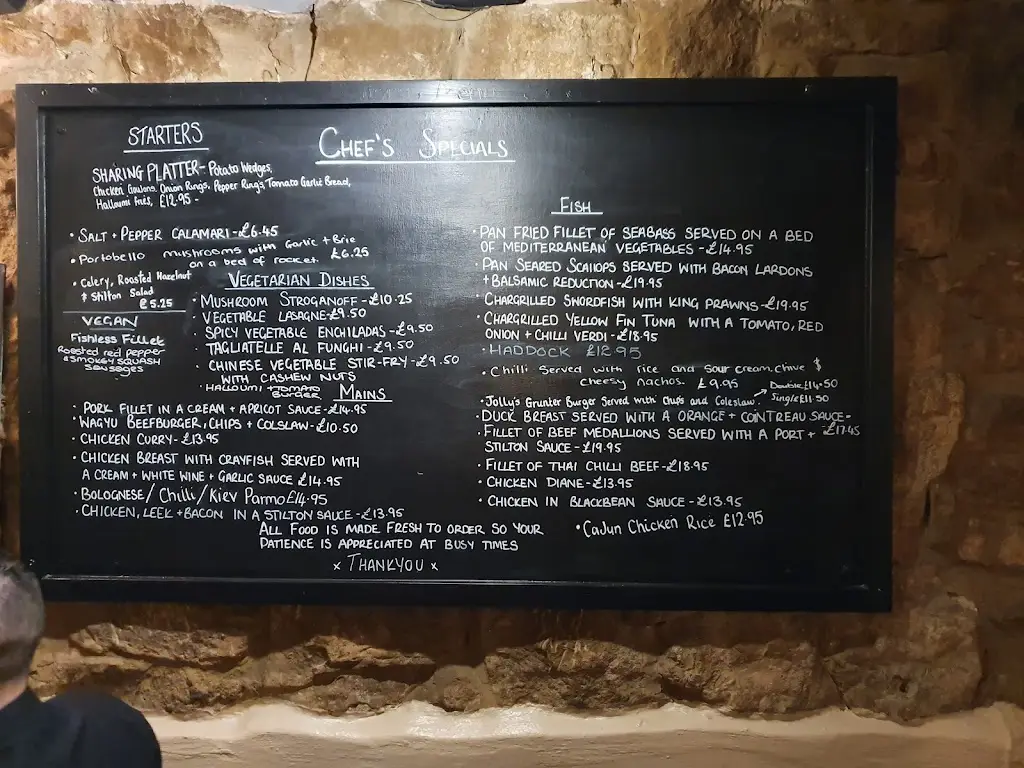 STARTERS
CHEF'S SPECIALS
SHARING PLATTER - Potato Wedges,
Chicken Goujons, Onion Rings, Pepper Rings, Tomato Garlic Bread,
Halloumi fries, £12.95 -
• SALT + PEPPER CALAMARI - £6.45
• Portobello mushrooms with Garlic + Brie
on a bed of rocket. £6.25
• Celery, Roasted Hazelnut
& Stilton Salad
£5.25
VEGAN
Fishless Fillet
Roasted red pepper
& SMOKEY SQUASH
SAUSAGES
VEGETARIAN DISHES
• MUSHROOM STROGANOFF - £10.25
• VEGETABLE LASAGNE £9.50
• SPICY VEGETABLE ENCHILADAS - £9.50
• TAGLIATELLE AL FUNGHI - £9.50
• CHINESE VEGETABLE STIR-FRY - £9.50
WITH CASHEW NUTS
• HALLOUMI + TOMATO
BURGER
MAINS
• PORK FILLET IN A CREAM + APRICOT SAUCE - £14.95
• WAGYU BEEFBURGER, CHIPS + COLSLAW - £10.50
• CHICKEN CURRY - £13.95
• CHICKEN BREAST WITH CRAYFISH SERVED WITH
A CREAM + WHITE WINE + GARLIC SAUCE £14.95
• BOLOGNESE / Chilli / Kiev Parmo £14.95
• CHICKEN, LEEK + BACON IN A STILTON SAUCE - £13.95
FISH
• PAN FRIED FILLET OF SEABASS SERVED ON A BED
OF MEDITERRANEAN VEGETABLES - £14.95
PAN SEARED SCALLOPS SERVED WITH BACON LARDONS
+ BALSAMIC REDUCTION - £19.95
• CHARGRILLED SWORDFISH WITH KING PRAWNS - £19.95
• CHARGRILLED YELLOW FIN TUNA WITH A TOMATO, RED
ONION + CHILLI VERDI - £18.95
• HADDOCK £12.95
• Chilli Served with rice and sour cream, chive &
cheesy nachos. £9.95
• Jolly's Grunter Burger Served with Chips and Coleslaw → Double £14.50
Single £11.50
DUCK BREAST SERVED WITH A ORANGE + COINTREAU SAUCE - £17.45
• FILLET OF BEEF MEDALLIONS SERVED WITH A PORT +
STILTON SAUCE - £19.95
• FILLET OF THAI CHILLI BEEF - £18.95
• CHICKEN DIANE - £13.95
• CHICKEN IN BLACKBEAN SAUCE - £13.95
• Cajun Chicken Rice £12.95
ALL FOOD IS MADE FRESH TO ORDER SO YOUR
PATIENCE IS APPRECIATED AT BUSY TIMES
x THANKYOU x